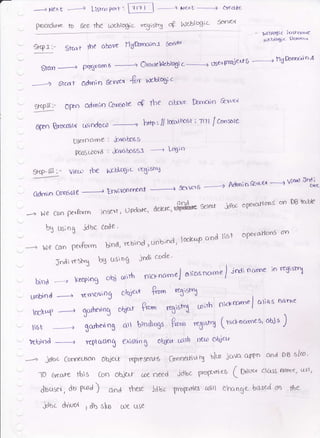 → Next → Listen port : 7171 → Next → Create
procedure to see the weblogic registry of Weblogic Server
Step I :- Start the above MyDomain1 Server
Start → programs → Oracle Weblogic → user projects → MyDomain1
→ Start Admin Server for Weblogic
Step II :- Open admin Console of the above Domain Server
open Browser window → http://localhost:7171/console
Username : javaboss
password : javaboss1 → Login
Step-III :- View the weblogic registry
Admin Console → Environment → Servers → Admin Server → view Jndi tree
→ We can perform insert, Update, delete, and Select jdbc operations on DB table
by using jdbc code.
→ We can perform bind, rebind, unbind, lookup and list operations on
Jndi registry by using jndi code.
bind → keeping obj with nickname / alias name / jndi name in registry
unbind → removing object from registry
lookup → gathering object from registry with nickname / alias name
list → gathering all bindings from registry (nicknames, objs)
rebind → replacing existing object with new object
→ jdbc Connection object represents Connectivity b/w java appn and DB s/w.
To create this con object we need jdbc properties (Driver class name, url,
dbuser, db pwd) and these jdbc properties will change based on the
jdbc driver, db s/w we use